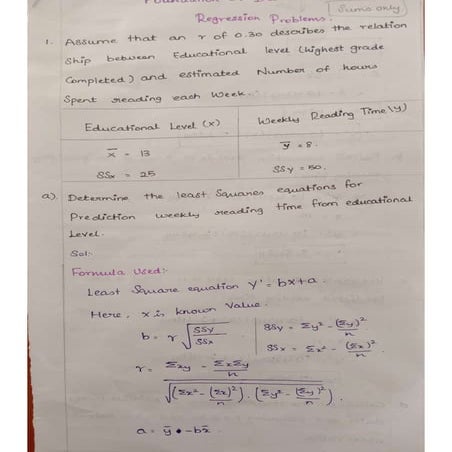 Sums only
Regression Problems:
1. Assume that an r of 0.30 describes the relation
ship between Educational level (highest grade
completed) and estimated Number of hours
Spent reading each Week.
Educational Level (x) Weekly Reading Time (y)
x̄ = 13 ȳ = 8.
SSx = 25 SSy = 50.
a). Determine the least Squares equations for
Prediction weekly reading time from educational
Level.
Sol:-
Formula Used:-
Least Square equation y' = bx+a.
Here, x is known Value.
b = r √(SSy/SSx) SSy = Σy² - (Σy)²/n
SSx = Σx² - (Σx)²/n
r = (Σxy - ΣxΣy/n) / √((Σx² - (Σx)²/n) . (Σy² - (Σy)²/n)).
a = ȳ - bx̄